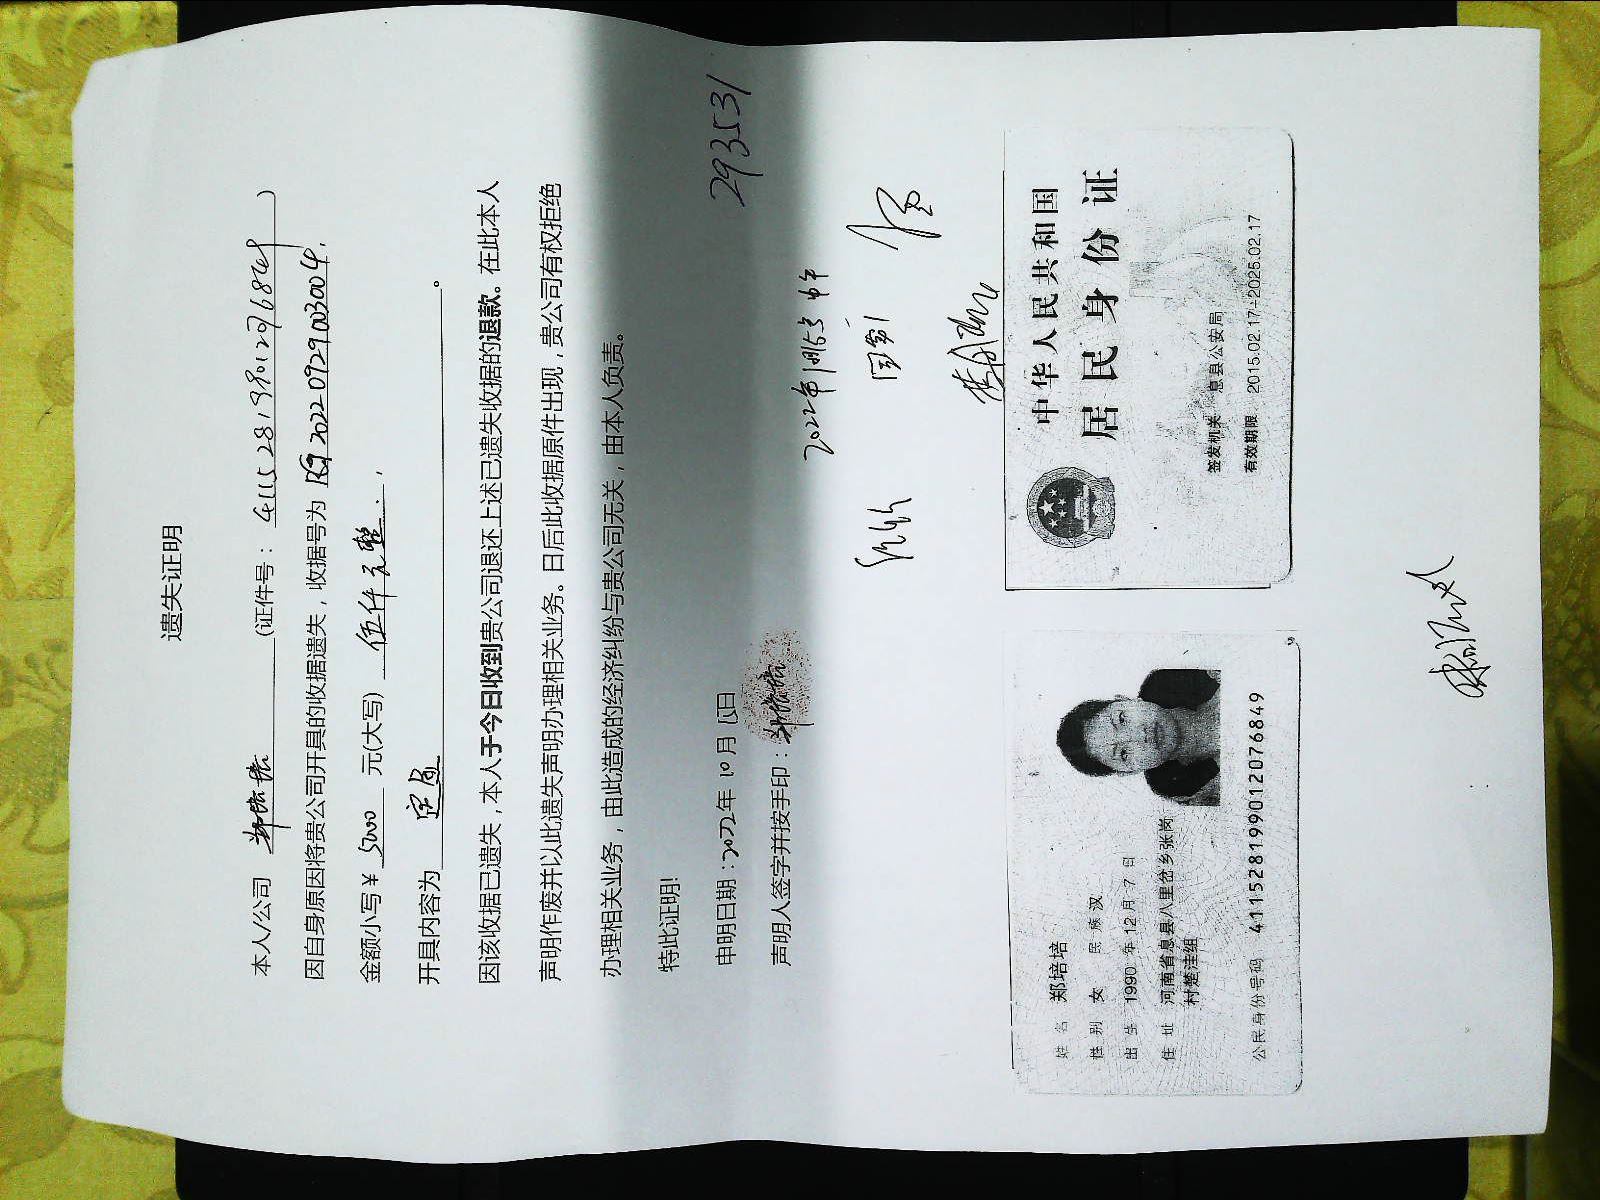 遗失证明
本人/公司 郑培培 (证件号: 411528199012076849)
因自身原因将贵公司开具的收据遗失，收据号为 20220929003004，
金额小写¥ 5000 元(大写) 伍仟元整，
开具内容为 定金。
因该收据已遗失，本人于今日收到贵公司退还上述已遗失收据的退款。在此本人
声明作废并以此遗失声明办理相关业务。日后此收据原件出现，贵公司有权拒绝
办理相关业务，由此造成的经济纠纷与贵公司无关，由本人负责。
特此证明!
293531
申明日期: 2022年 10月 日
声明人签字并按手印: 郑培培
2022年
中华人民共和国
居民身份证
签发机关 息县公安局
有效期限 2015.02.17-2025.02.17
姓名 郑培培
性别 女 民族 汉
出生 1990年12月7日
住址 河南省息县八里岔乡张岗
村楚洼组
公民身份号码 411528199012076849